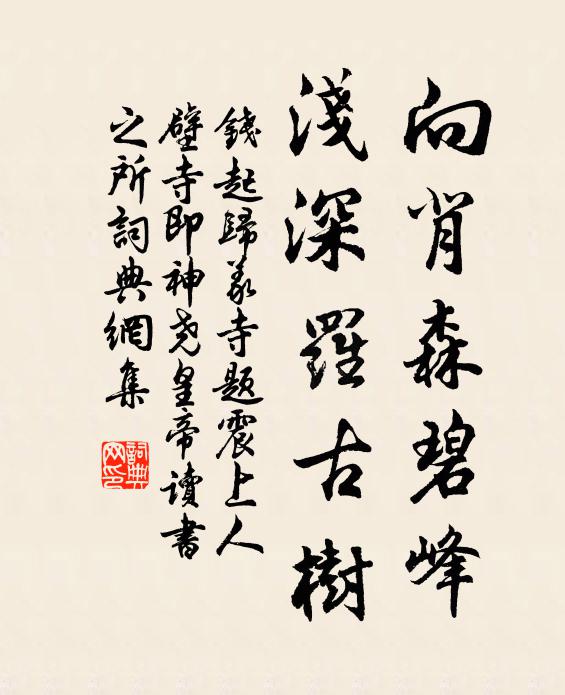 向肖森碧峰
淺深羅古樹
錢起歸義寺題震上人
壁寺即神堯皇帝讀書
之所詞典網集
詞典
网印